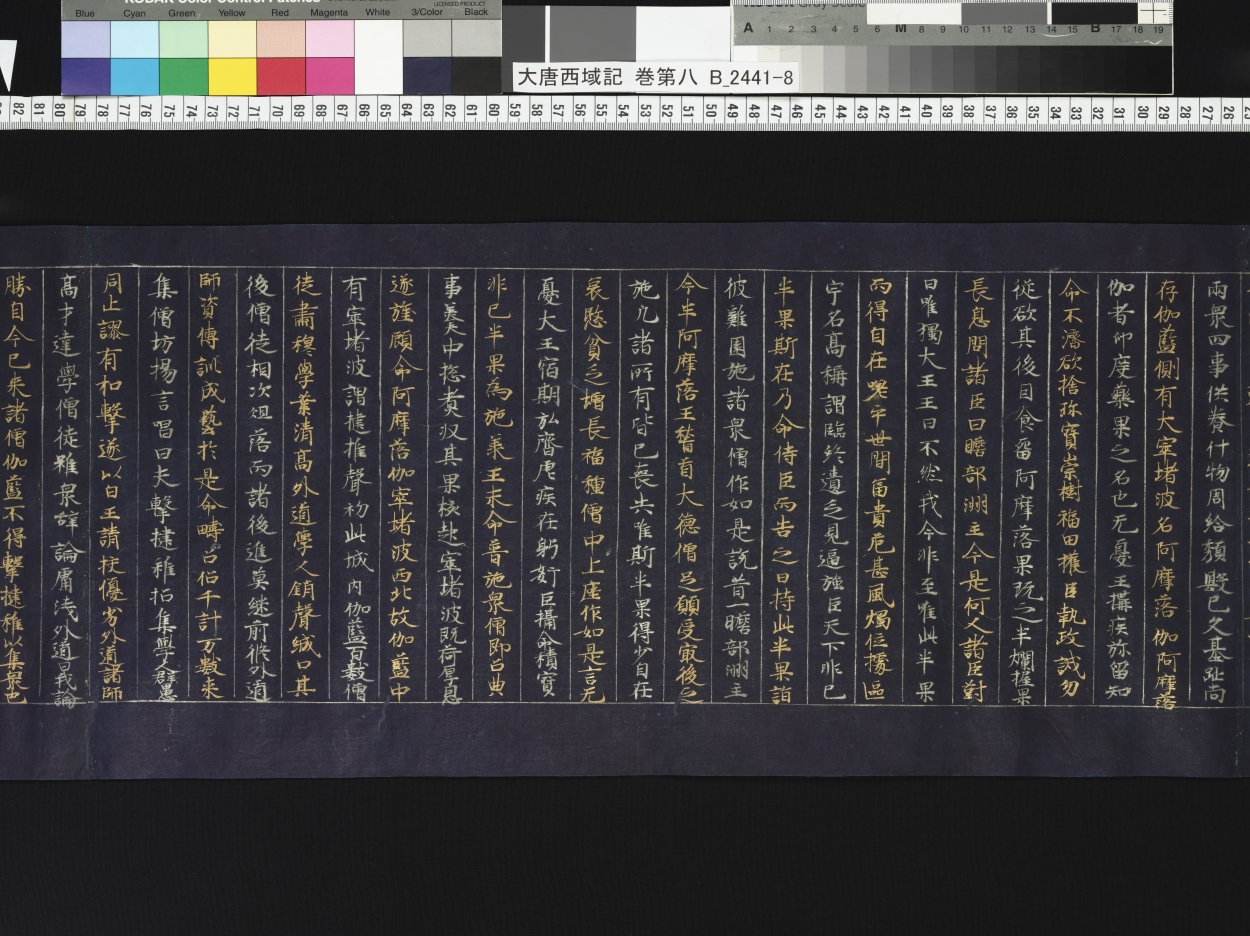 KODAK Color Control Patches
LICENSED PRODUCT
Blue Cyan Green Yellow Red Magenta White 3/Color Black
A 1 2 3 4 5 6 M 8 9 10 11 12 13 14 15 B 17 18 19
大唐西域記 巻第八 B_2441-8
82 81 80 79 78 77 76 75 74 73 72 71 70 69 68 67 66 65 64 63 62 61 60 59 58 57 56 55 54 53 52 51 50 49 48 47 46 45 44 43 42 41 40 39 38 37 36 35 34 33 32 31 30 29 28 27 26
兩衆四事供養什物周給頹毀已久基趾尚
存伽藍側有大窣堵波名阿摩落伽阿摩落
伽者印度藥果之名也无憂王搆疾弥留知
命不濟欲捨珎寳崇樹福田權臣執政誡勿
從欲其後因食留阿摩落果玩之半爛握果
長息問諸臣曰瞻部洲主今是何人諸臣對
曰唯獨大王王曰不然我今非主唯此半果
而得自在嗟乎世間富貴危甚風燭位據區
宇名高稱謂臨終遺乏見逼強臣天下非已
半果斯在乃命侍臣而告之曰持此半果詣
彼雞園施諸衆僧作如是說昔一瞻部洲主
今半阿摩落王稽首大德僧前願受最後之
施凡諸所有皆已喪失唯斯半果得少自在
哀愍貧乏增長福種僧中上座作如是言无
憂大王宿期弘濟虐疾在躬姧臣擅命積寳
非已半果為施業王末命普施衆僧即召典
事羮中惣煑收其果核起窣堵波既荷厚恩
遂旌顧命阿摩落伽窣堵波西北故伽藍中
有窣堵波謂揵推聲初此城內伽藍百數僧
徒肅穆學業清高外道學人銷聲緘口其
後僧徒相次徂落而諸後進莫継前修外道
師資傳訓成藝於是命疇召侶千計万數來
集僧坊揚言唱曰夫擊揵稚招集學人群愚
同止謬有和擊遂以白王請挍優劣外道諸師
高才達學僧徒雖衆辞論庸浅外道曰我論
勝自今已來諸僧伽藍不得擊揵稚以集衆也